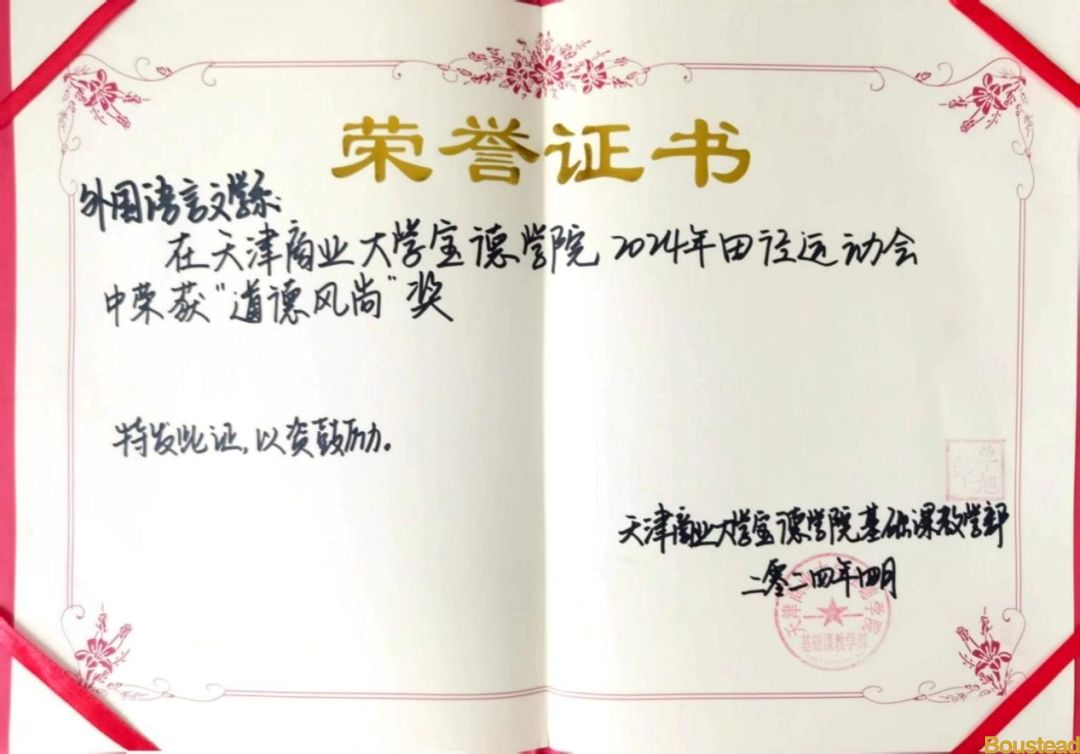 荣誉证书
外国语言文学系:
在天津商业大学宝德学院2024年田径运动会
中荣获“道德风尚”奖
特发此证,以资鼓励。
天津商业大学宝德学院基础课教学部
二零二四年四月
基础课教学部
Boustead